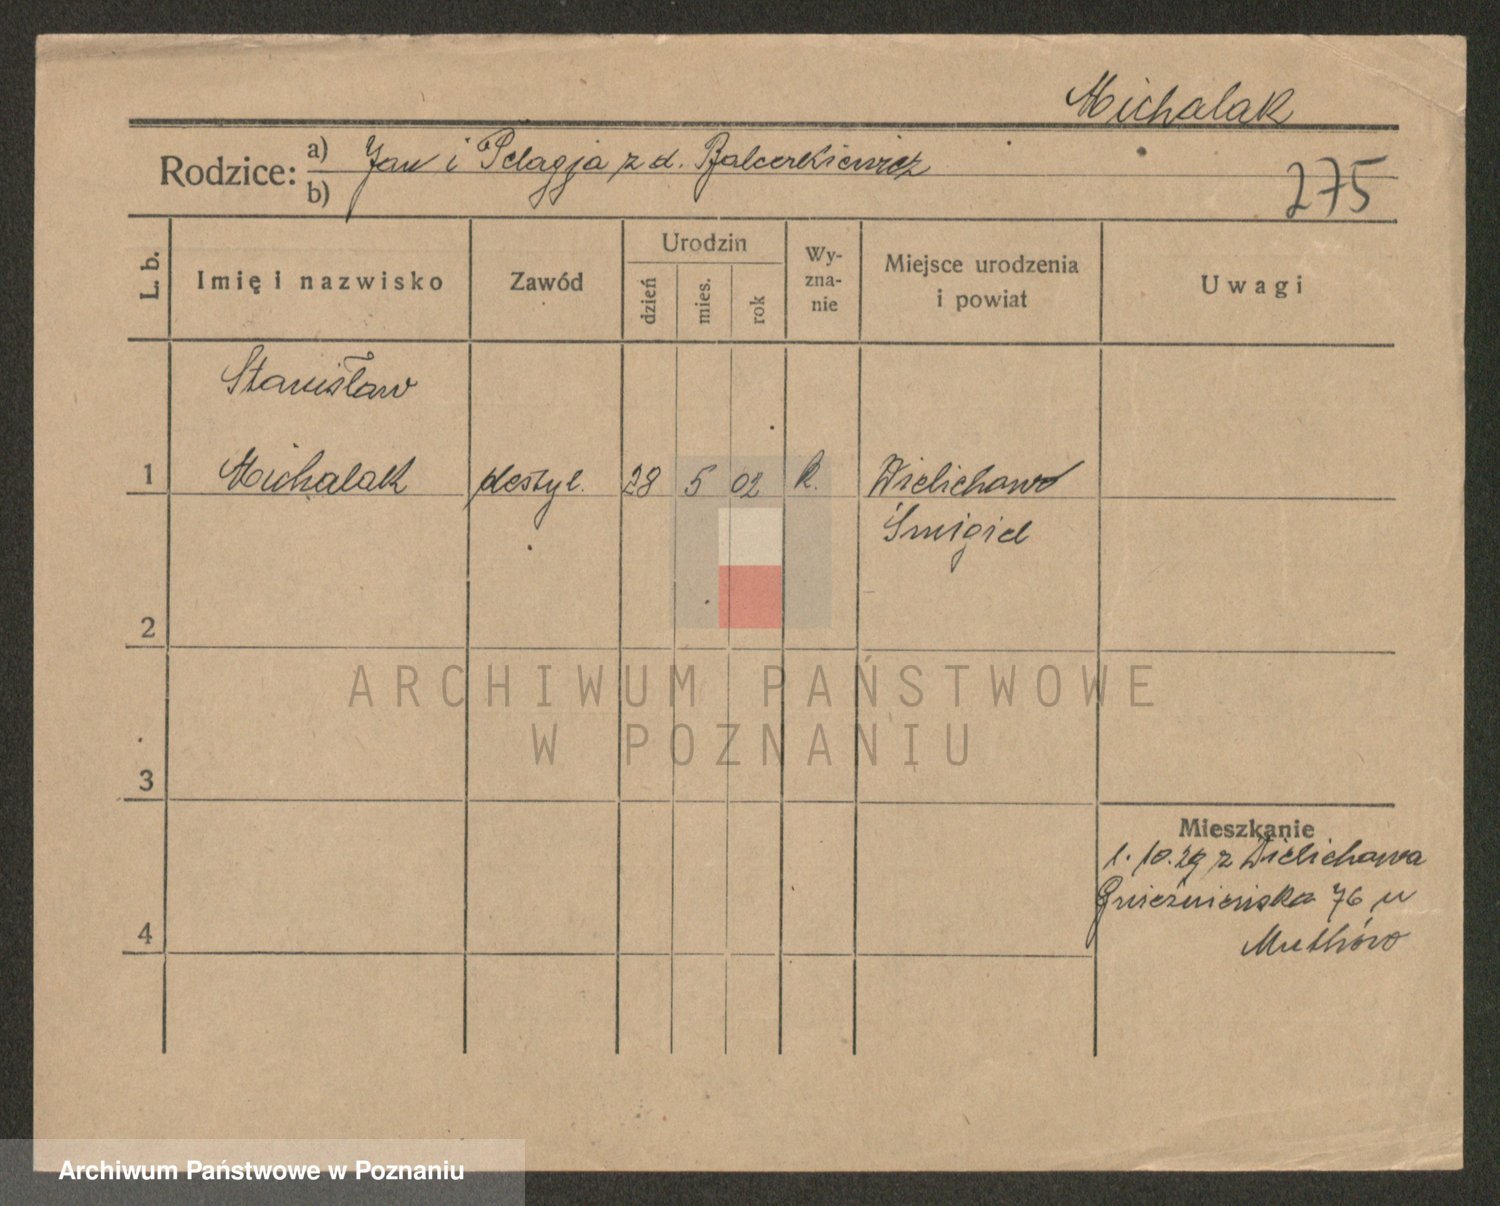 Michalak
Rodzice: a) Jan i Pelagja z d. Balcerkiewicz
b)
275
L. b.
Imię i nazwisko
Zawód
Urodzin
dzień
mies.
rok
Wy-
zna-
nie
Miejsce urodzenia
i powiat
Uwagi
Stanisław
1 Michalak destyl. 28 5 02 k. Wielichowo
Śmigiel
2
ARCHIWUM PAŃSTWOWE
W POZNANIU
3
Mieszkanie
1. 10. 29 z Wielichowa
Gnieźnieńska 76 u
4
Archiwum Państwowe w Poznaniu